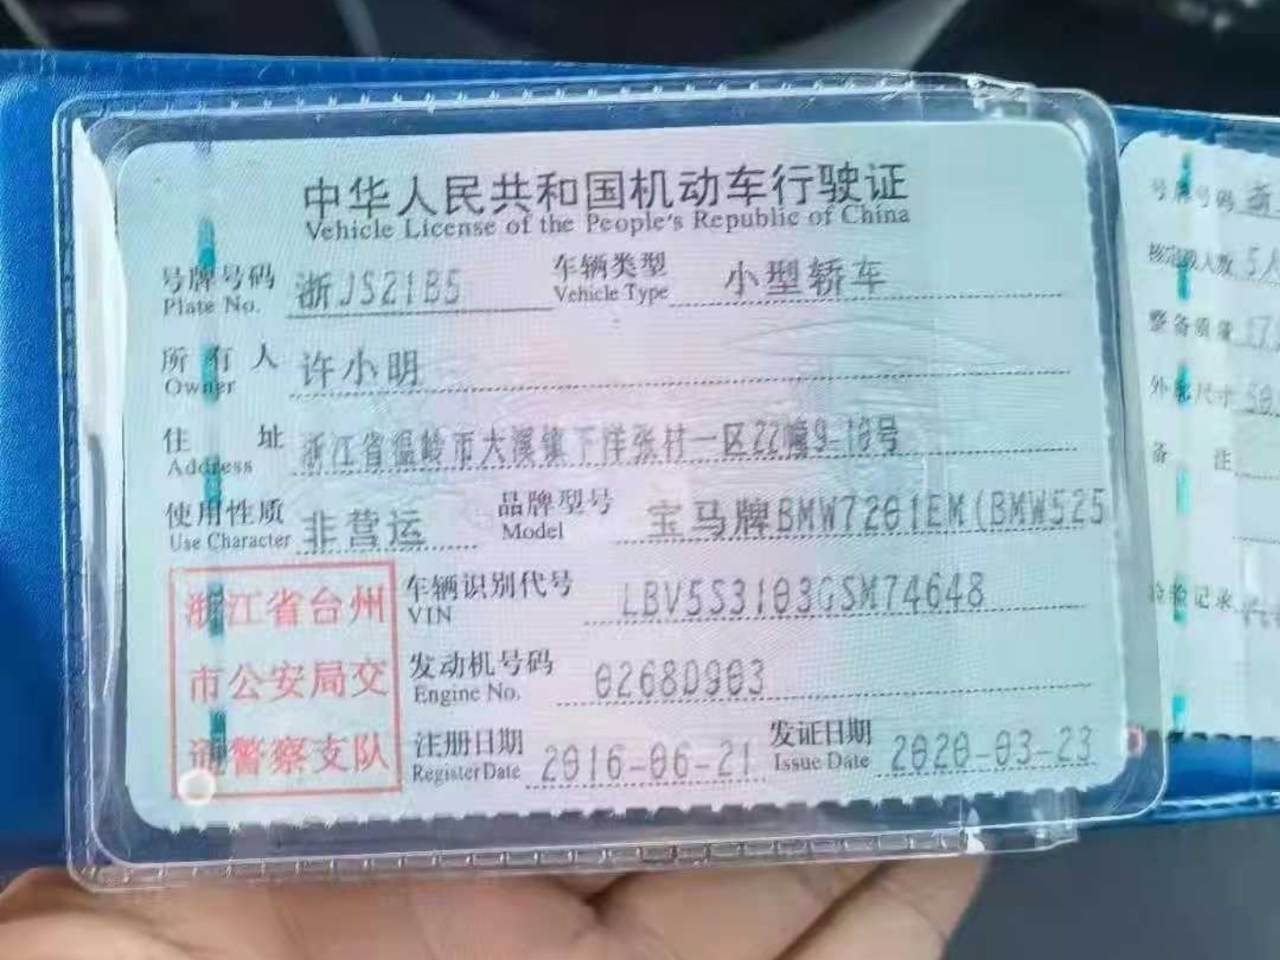 中华人民共和国机动车行驶证
Vehicle License of the People's Republic of China
号牌号码 浙JS21B5 车辆类型 小型轿车
Plate No. Vehicle Type
所有人 许小明
Owner
住址 浙江省温岭市大溪镇下洋张村一区22幢9-10号
Address
使用性质 非营运 品牌型号 宝马牌BMW7201EM(BMW525
Use Character Model
浙江省台州
市公安局交
通警察支队
车辆识别代号 LBV5S3103GSM74648
VIN
发动机号码 0268D903
Engine No.
注册日期 2016-06-21 发证日期 2020-03-23
Register Date Issue Date
号牌号码 浙
核定载人数 5人
整备质量 17
外廓尺寸 50
备注
检验记录